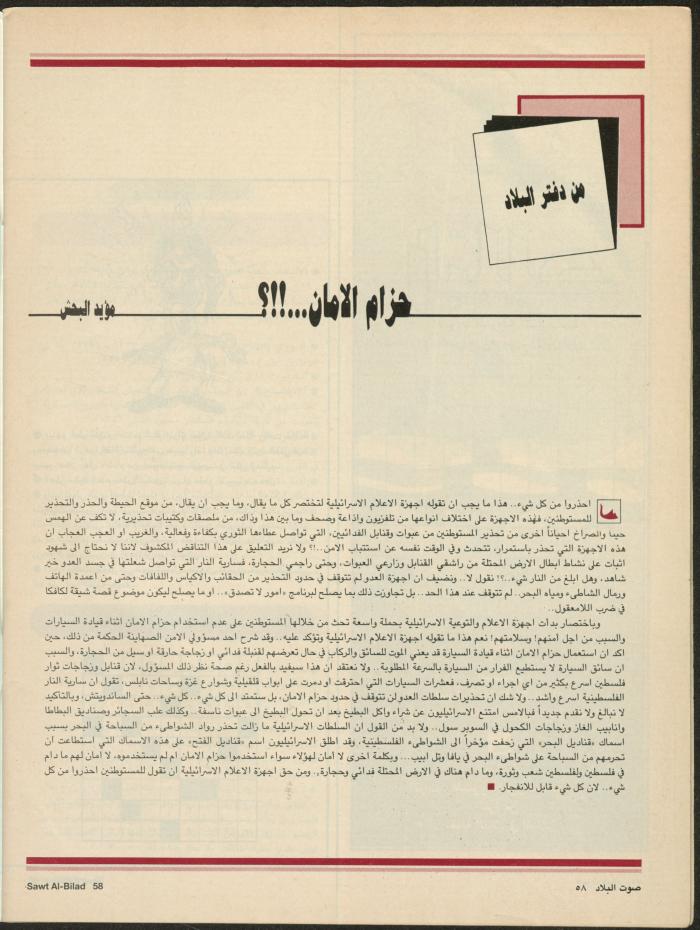 من دفتر البلاد
حزام الامان...!!؟
مؤيد البحش
احذروا من كل شيء.. هذا ما يجب ان تقوله اجهزة الاعلام الاسرائيلية لتختصر كل ما يقال، وما يجب ان يقال، من موقع الحيطة والحذر والتحذير
للمستوطنين، فهذه الاجهزة على اختلاف انواعها من تلفزيون واذاعة وصحف وما بين هذا وذاك، من ملصقات وكتيبات تحذيرية، لا تكف عن الهمس
حينا والصراخ احياناً اخرى من تحذير المستوطنين من عبوات وقنابل الفدائيين، التي تواصل عطاءها الثوري بكفاءة وفعالية، والغريب او العجب العجاب ان
هذه الاجهزة التي تحذر باستمرار، تتحدث وفي الوقت نفسه عن استتباب الامن..!؟ ولا نريد التعليق على هذا التناقض المكشوف لاننا لا نحتاج الى شهود
اثبات على نشاط ابطال الارض المحتلة من راشقي القنابل وزارعي العبوات، وحتى راجمي الحجارة، فسارية النار التي تواصل شعلتها في جسد العدو خير
شاهد، وهل ابلغ من النار شيء..؟! نقول لا.. ونضيف ان اجهزة العدو لم تتوقف في حدود التحذير من الحقائب والاكياس واللفافات وحتى من اعمدة الهاتف
ورمال الشواطىء ومياه البحر.. لم تتوقف عند هذا الحد.. بل تجاوزت ذلك بما يصلح لبرنامج «امور لا تصدق».. او ما يصلح ليكون موضوع قصة شيقة لكافكا
في ضرب اللامعقول..
وباختصار بدأت اجهزة الاعلام والتوعية الاسرائيلية بحملة واسعة تحث من خلالها المستوطنين على عدم استخدام حزام الامان اثناء قيادة السيارات
والسبب من اجل امنهم! وسلامتهم! نعم هذا ما تقوله اجهزة الاعلام الاسرائيلية وتؤكد عليه.. وقد شرح احد مسؤولي الامن الصهاينة الحكمة من ذلك، حين
اكد ان استعمال حزام الامان اثناء قيادة السيارة قد يعني الموت للسائق والركاب في حال تعرضهم لقنبلة فدائي او زجاجة حارقة او سيل من الحجارة، والسبب
ان سائق السيارة لا يستطيع الفرار من السيارة بالسرعة المطلوبة.. ولا نعتقد ان هذا سيفيد بالفعل رغم صحة نظر ذلك المسؤول، لان قنابل وزجاجات ثوار
فلسطين اسرع بكثير من اي اجراء او تصرف، فعشرات السيارات التي احترقت او دمرت على ابواب قلقيلية وشوارع غزة وساحات نابلس، تقول ان سارية النار
الفلسطينية اسرع واشد.. ولا شك ان تحذيرات سلطات العدو لن تتوقف في حدود حزام الامان، بل ستمتد الى كل شيء.. كل شيء.. حتى الساندويتش، وبالتاكيد
لا نبالغ ولا نقدم جديداً فبالامس امتنع الاسرائيليون عن شراء واكل البطيخ بعد ان تحول البطيخ الى عبوات ناسفة.. وكذلك علب السجائر وصناديق البطاطا
وانابيب الغاز وزجاجات الكحول في السوبر سول.. ولا بد من القول ان السلطات الاسرائيلية ما زالت تحذر رواد الشواطىء من السباحة في البحر بسبب
اسماك «قناديل البحر» التي زحفت مؤخراً الى الشواطىء الفلسطينية، وقد اطلق الاسرائيليون اسم «قناديل الفتح» على هذه الاسماك التي استطاعت ان
تحرمهم من السباحة على شواطىء البحر في يافا وتل ابيب... وبكلمة اخرى لا أمان لهؤلاء سواء استخدموا حزام الامان ام لم يستخدموه، لا أمان لهم ما دام
في فلسطين ولفلسطين شعب وثورة، وما دام هناك في الارض المحتلة فدائي وحجارة.. ومن حق اجهزة الاعلام الاسرائيلية ان تقول للمستوطنين احذروا من كل
شيء.. لان كل شيء قابل للانفجار.
صوت البلاد ٥٨
Sawt Al-Bilad 58